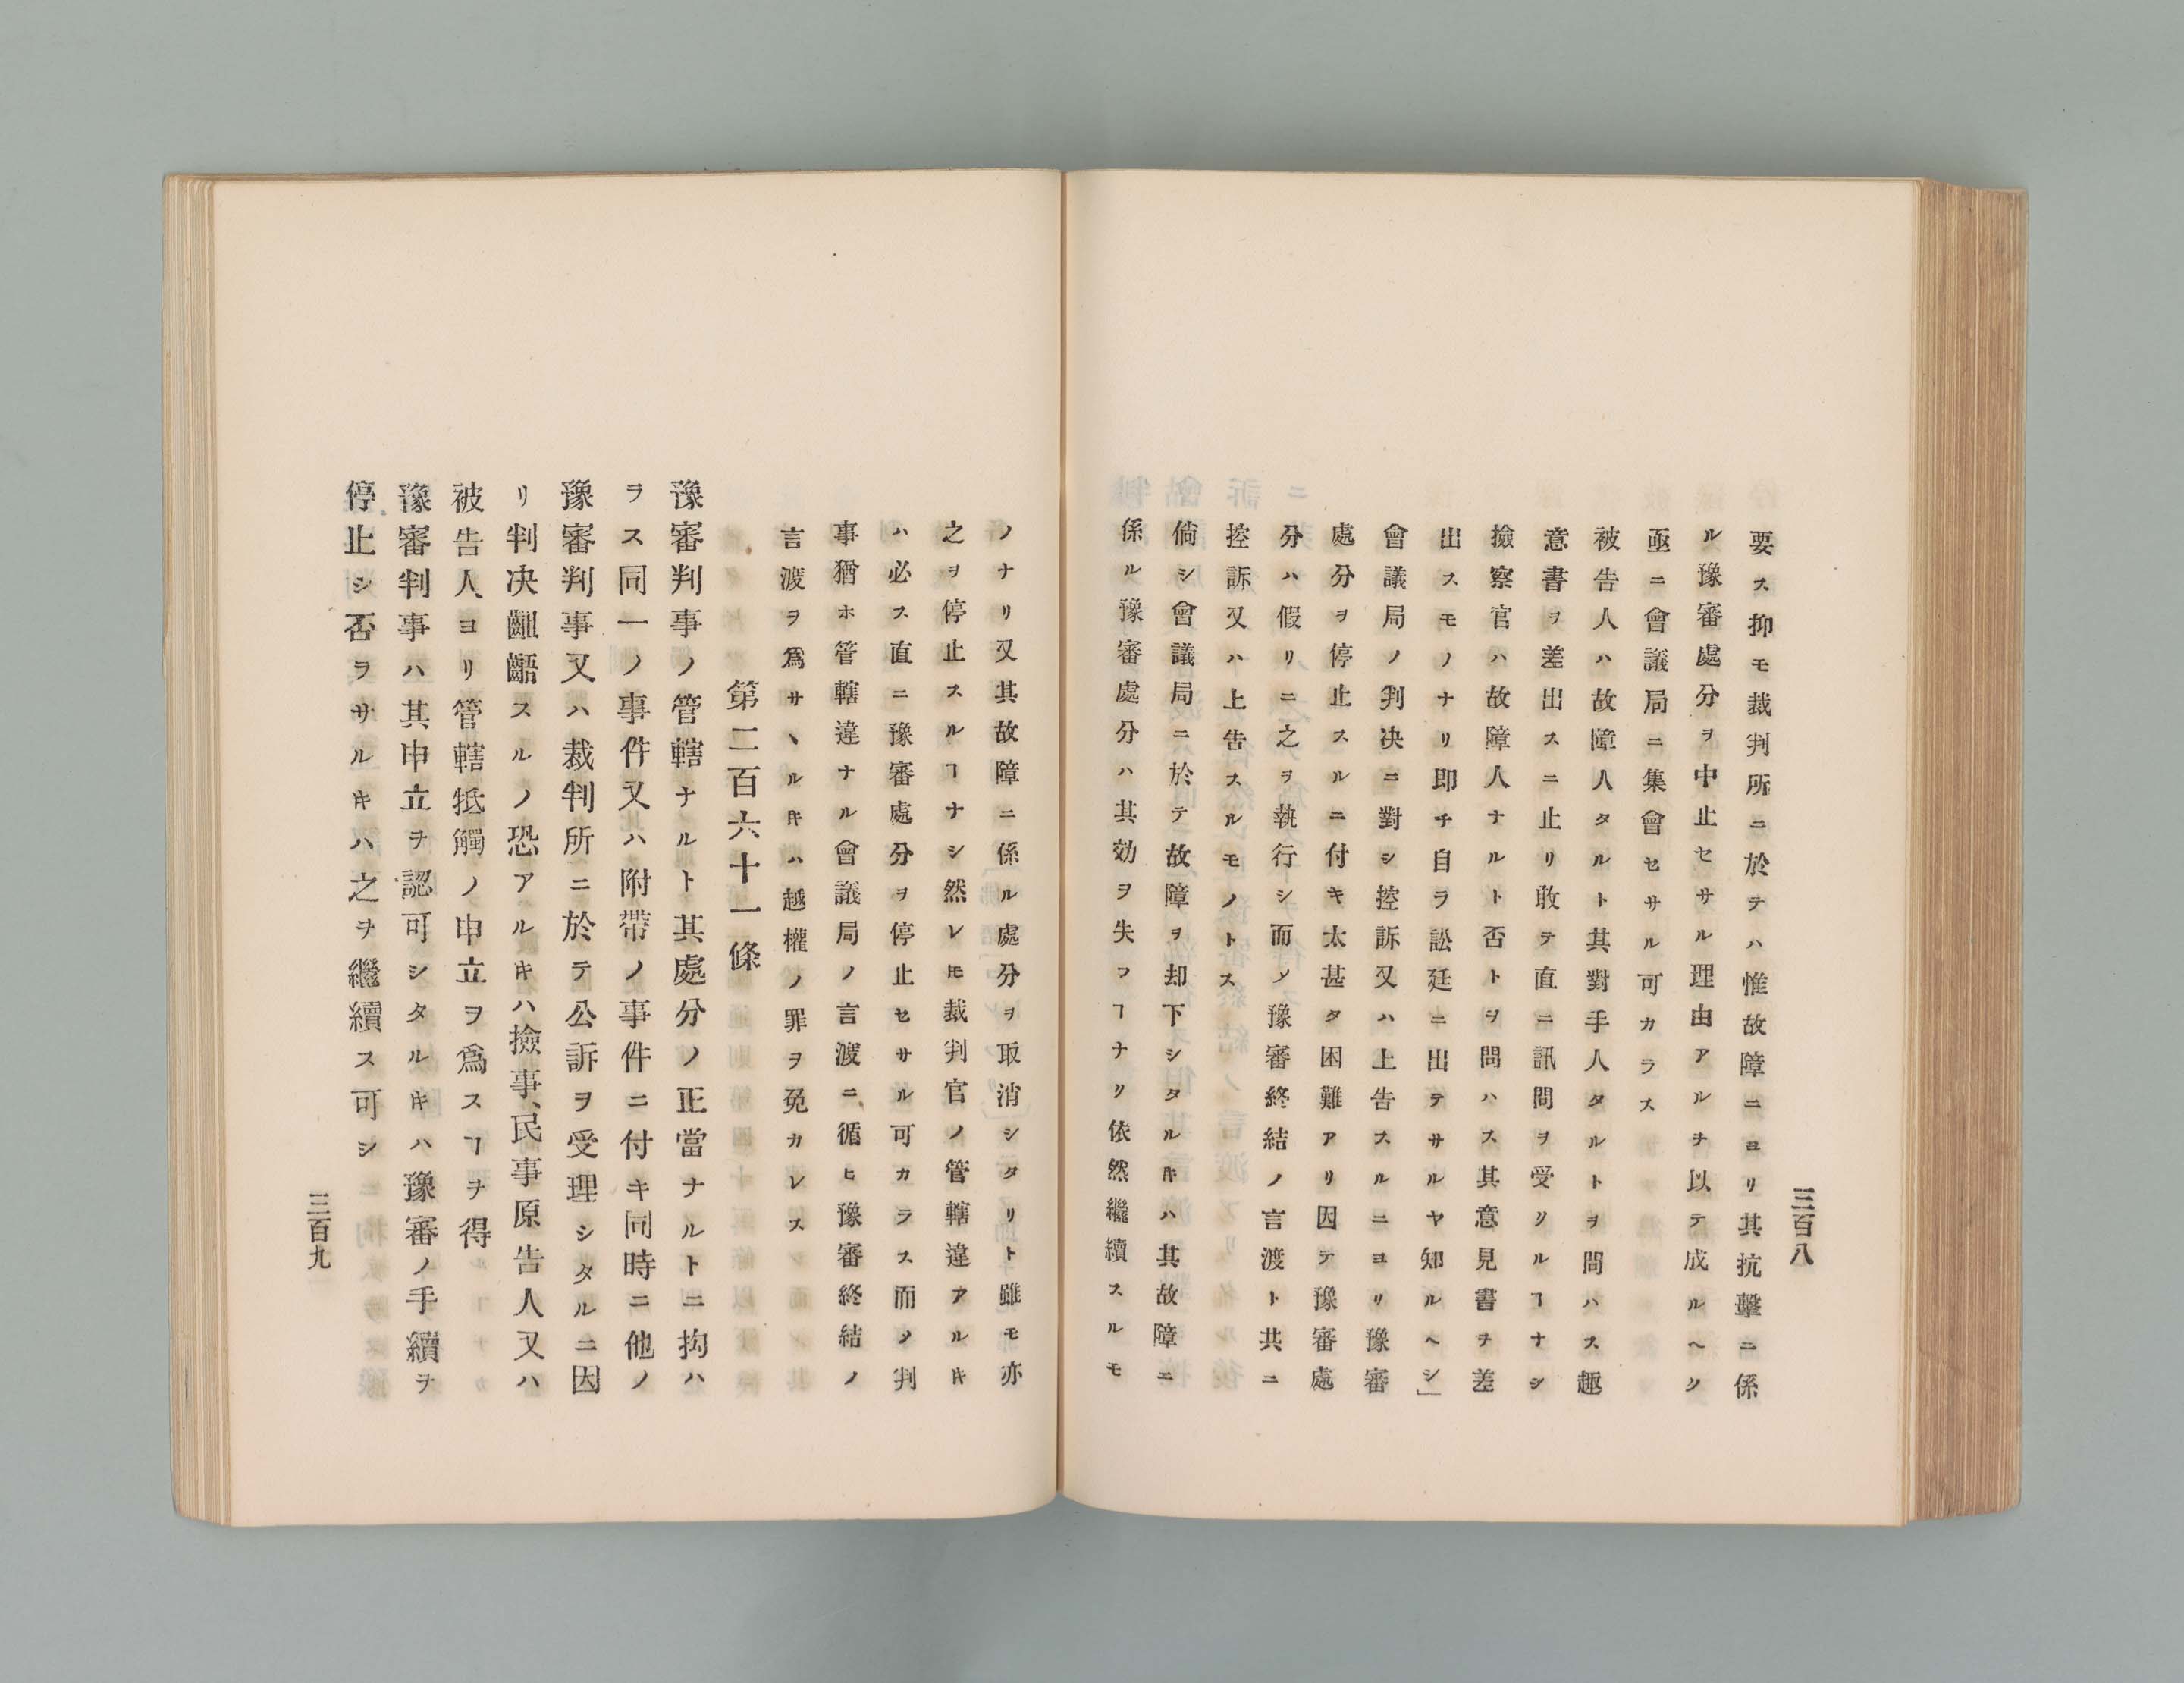 三百八
要ス抑モ裁判所ニ於テハ惟故障ニヨリ其抗擊ニ係
ル豫審處分ヲ中止セサル理由アルヲ以テ成ルヘク
亟ニ會議局ニ集會セサル可カラス
被告人ハ故障人タルト其對手人タルトヲ問ハス趣
意書ヲ差出スニ止リ敢テ直ニ訊問ヲ受クルヿナシ
撿察官ハ故障人ナルト否トヲ問ハス其意見書ヲ差
出スモノナリ即チ自ラ訟廷ニ出テサルヤ知ルヘシ」
會議局ノ判决ニ對シ控訴又ハ上告スルニヨリ豫審
處分ヲ停止スルニ付キ太甚タ困難アリ因テ豫審處
分ハ假リニ之ヲ執行シ而ノ豫審終結ノ言渡ト共ニ
控訴又ハ上告スルモノトス
倘シ會議局ニ於テ故障ヲ却下シタルキハ其故障ニ
係ル豫審處分ハ其効ヲ失フヿナリ依然繼續スルモ
ノナリ又其故障ニ係ル處分ヲ取消シタリト雖モ亦
之ヲ停止スルヿナシ然レ𪜈裁判官ノ管轄違アルキ
ハ必ス直ニ豫審處分ヲ停止セサル可カラス而ノ判
事猶ホ管轄違ナル會議局ノ言渡ニ循ヒ豫審終結ノ
言渡ヲ爲サヽルキハ越權ノ罪ヲ免カレス
第二百六十一條
豫審判事ノ管轄ナルト其處分ノ正當ナルトニ拘ハ
ラス同一ノ事件又ハ附帶ノ事件ニ付キ同時ニ他ノ
豫審判事又ハ裁判所ニ於テ公訴ヲ受理シタルニ因
リ判决齟齬スルノ恐アルキハ撿事、民事原告人又ハ
被告人ヨリ管轄抵觸ノ申立ヲ爲スヿヲ得
豫審判事ハ其申立ヲ認可シタルキハ豫審ノ手續ヲ
停止シ否ラサルキハ之ヲ繼續ス可シ
三百九